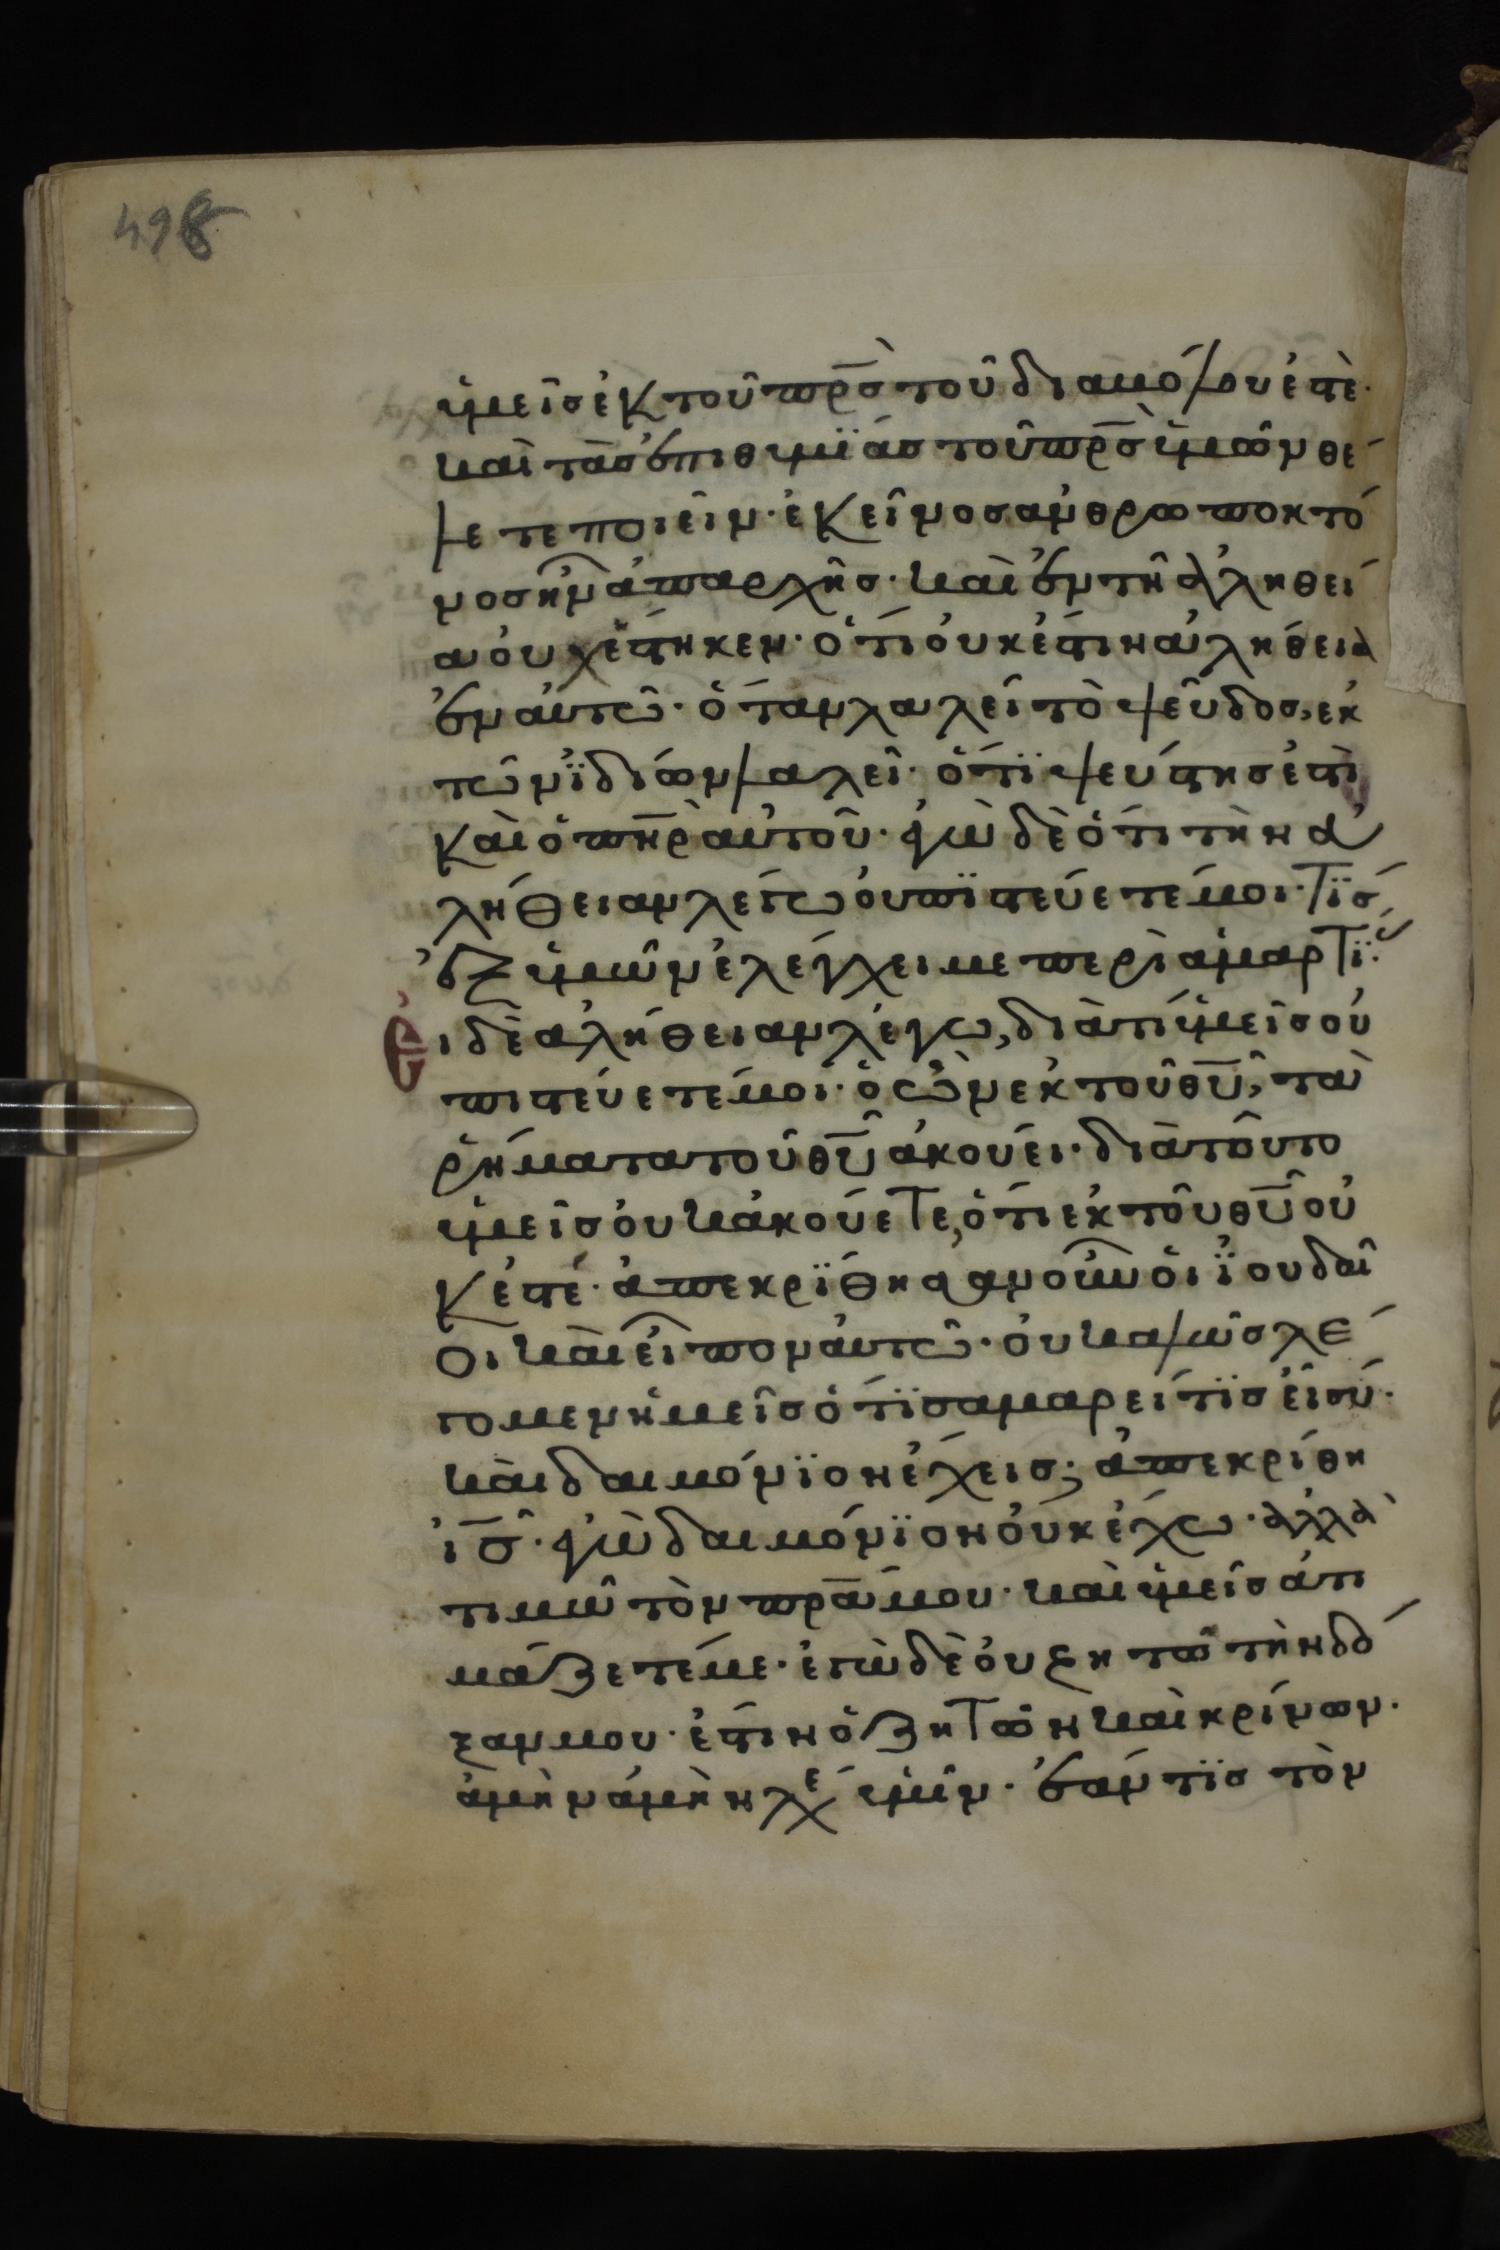 498
ὑμεῖς ἐκ τοῦ πρ̅ς τοῦ διαβόλου ἐστὲ.
καὶ τὰς ἐπιθυμΐας τοῦ πρ̅ς ὑμῶν θέ
λετε ποιεῖν. ἐκεῖνος ἀνθρωποκτό
νος ἦν ἀπαρχῆς. καὶ ἐν τῆ ἀληθεί
α οὐχ ἕστηκεν. ὅτι οὐκ ἔστιν ἀλήθεια
ἐν αὐτῶ. ὅταν λαλεῖ τὸ ψεῦδος, ἐκ
τῶν ϊδίων λαλεῖ. ὅτϊ ψεύστης ἐστὶ
καὶ ὁ πη̅ρ αὐτοῦ. ἐγὼ δὲ ὅτι τὴν ἀ
λήθειαν λέγω οὐ πϊστεύετέ μοι. τΐς
ἐξ ὑμῶν ἐλέγχει με περὶ ἁμαρτΐ.
Εἰ δὲ ἀλήθειαν λέγω, διὰ τί ὑμεῖς οὐ
πιστεύετέ μοι. ὁ ὢν ἐκ τοῦ θυ̅, τὰ
ῥήματα τοῦ θυ̅ ἀκούει. διὰ τοῦτο
ὑμεῖς οὐκ ἀκούετε, ὅτι ἐκ τοῦ θυ̅ οὐ
κ ἐστέ. ἀπεκρΐθησαν οὖν οἱ ϊουδαῖ
οι καὶ εἶπον αὐτῶ. οὐ καλῶς λέ
γομεν ἡμεῖς ὅτϊ σαμαρείτϊς εἶ σύ.
καὶ δαιμόνϊον ἔχεις; ἀπεκρίθη
ι̅ς. ἐγὼ δαιμόνϊον οὐκ ἔχω. ἀλλὰ
τιμῶ τὸν πρ̅α μου. καὶ ὑμεῖς ἀτι
μάζετέ με. ἐγὼ δὲ οὐ ζητῶ τὴν δό
ξαν μου. ἔστιν ὁ ζητῶν καὶ κρίνων.
ἀμὴν ἀμὴν λέγ ὑμῖν. ἐάν τϊς τὸν